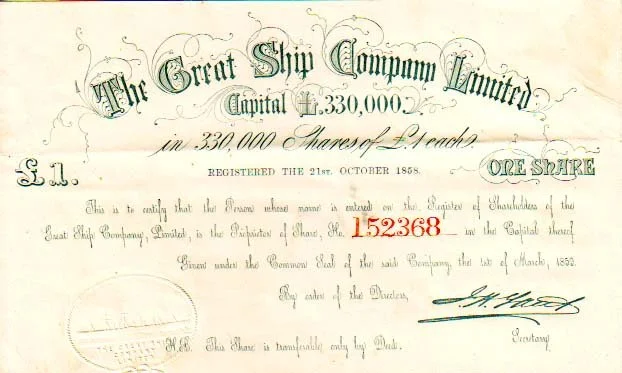 The Great Ship Company Limited
Capital £330,000.
in 330,000 Shares of £1 each.
REGISTERED THE 21ST. OCTOBER 1858.
£1.
ONE SHARE
This is to certify that the Person whose name is entered on the Register of Shareholders of the
Great Ship Company, Limited, is the Proprietor of Share, No. 152368 in the Capital thereof
Given under the Common Seal of the said Company, the 1st of March,
By order of the Directors,
Secretary
N.B. This Share is transferable only by Deed.
THE GREAT SHIP
COMPANY
LIMITED